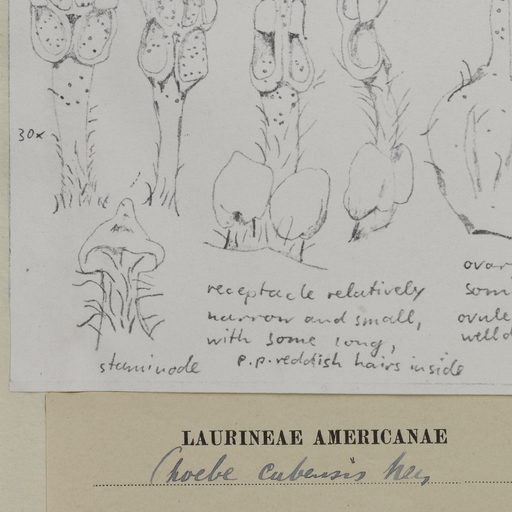 30x
receptacle relatively
narrow and small,
with some long,
p.p. reddish hairs inside
staminode
ovar
som
ovule
well d
LAURINEAE AMERICANAE
Phoebe cubensis Nees